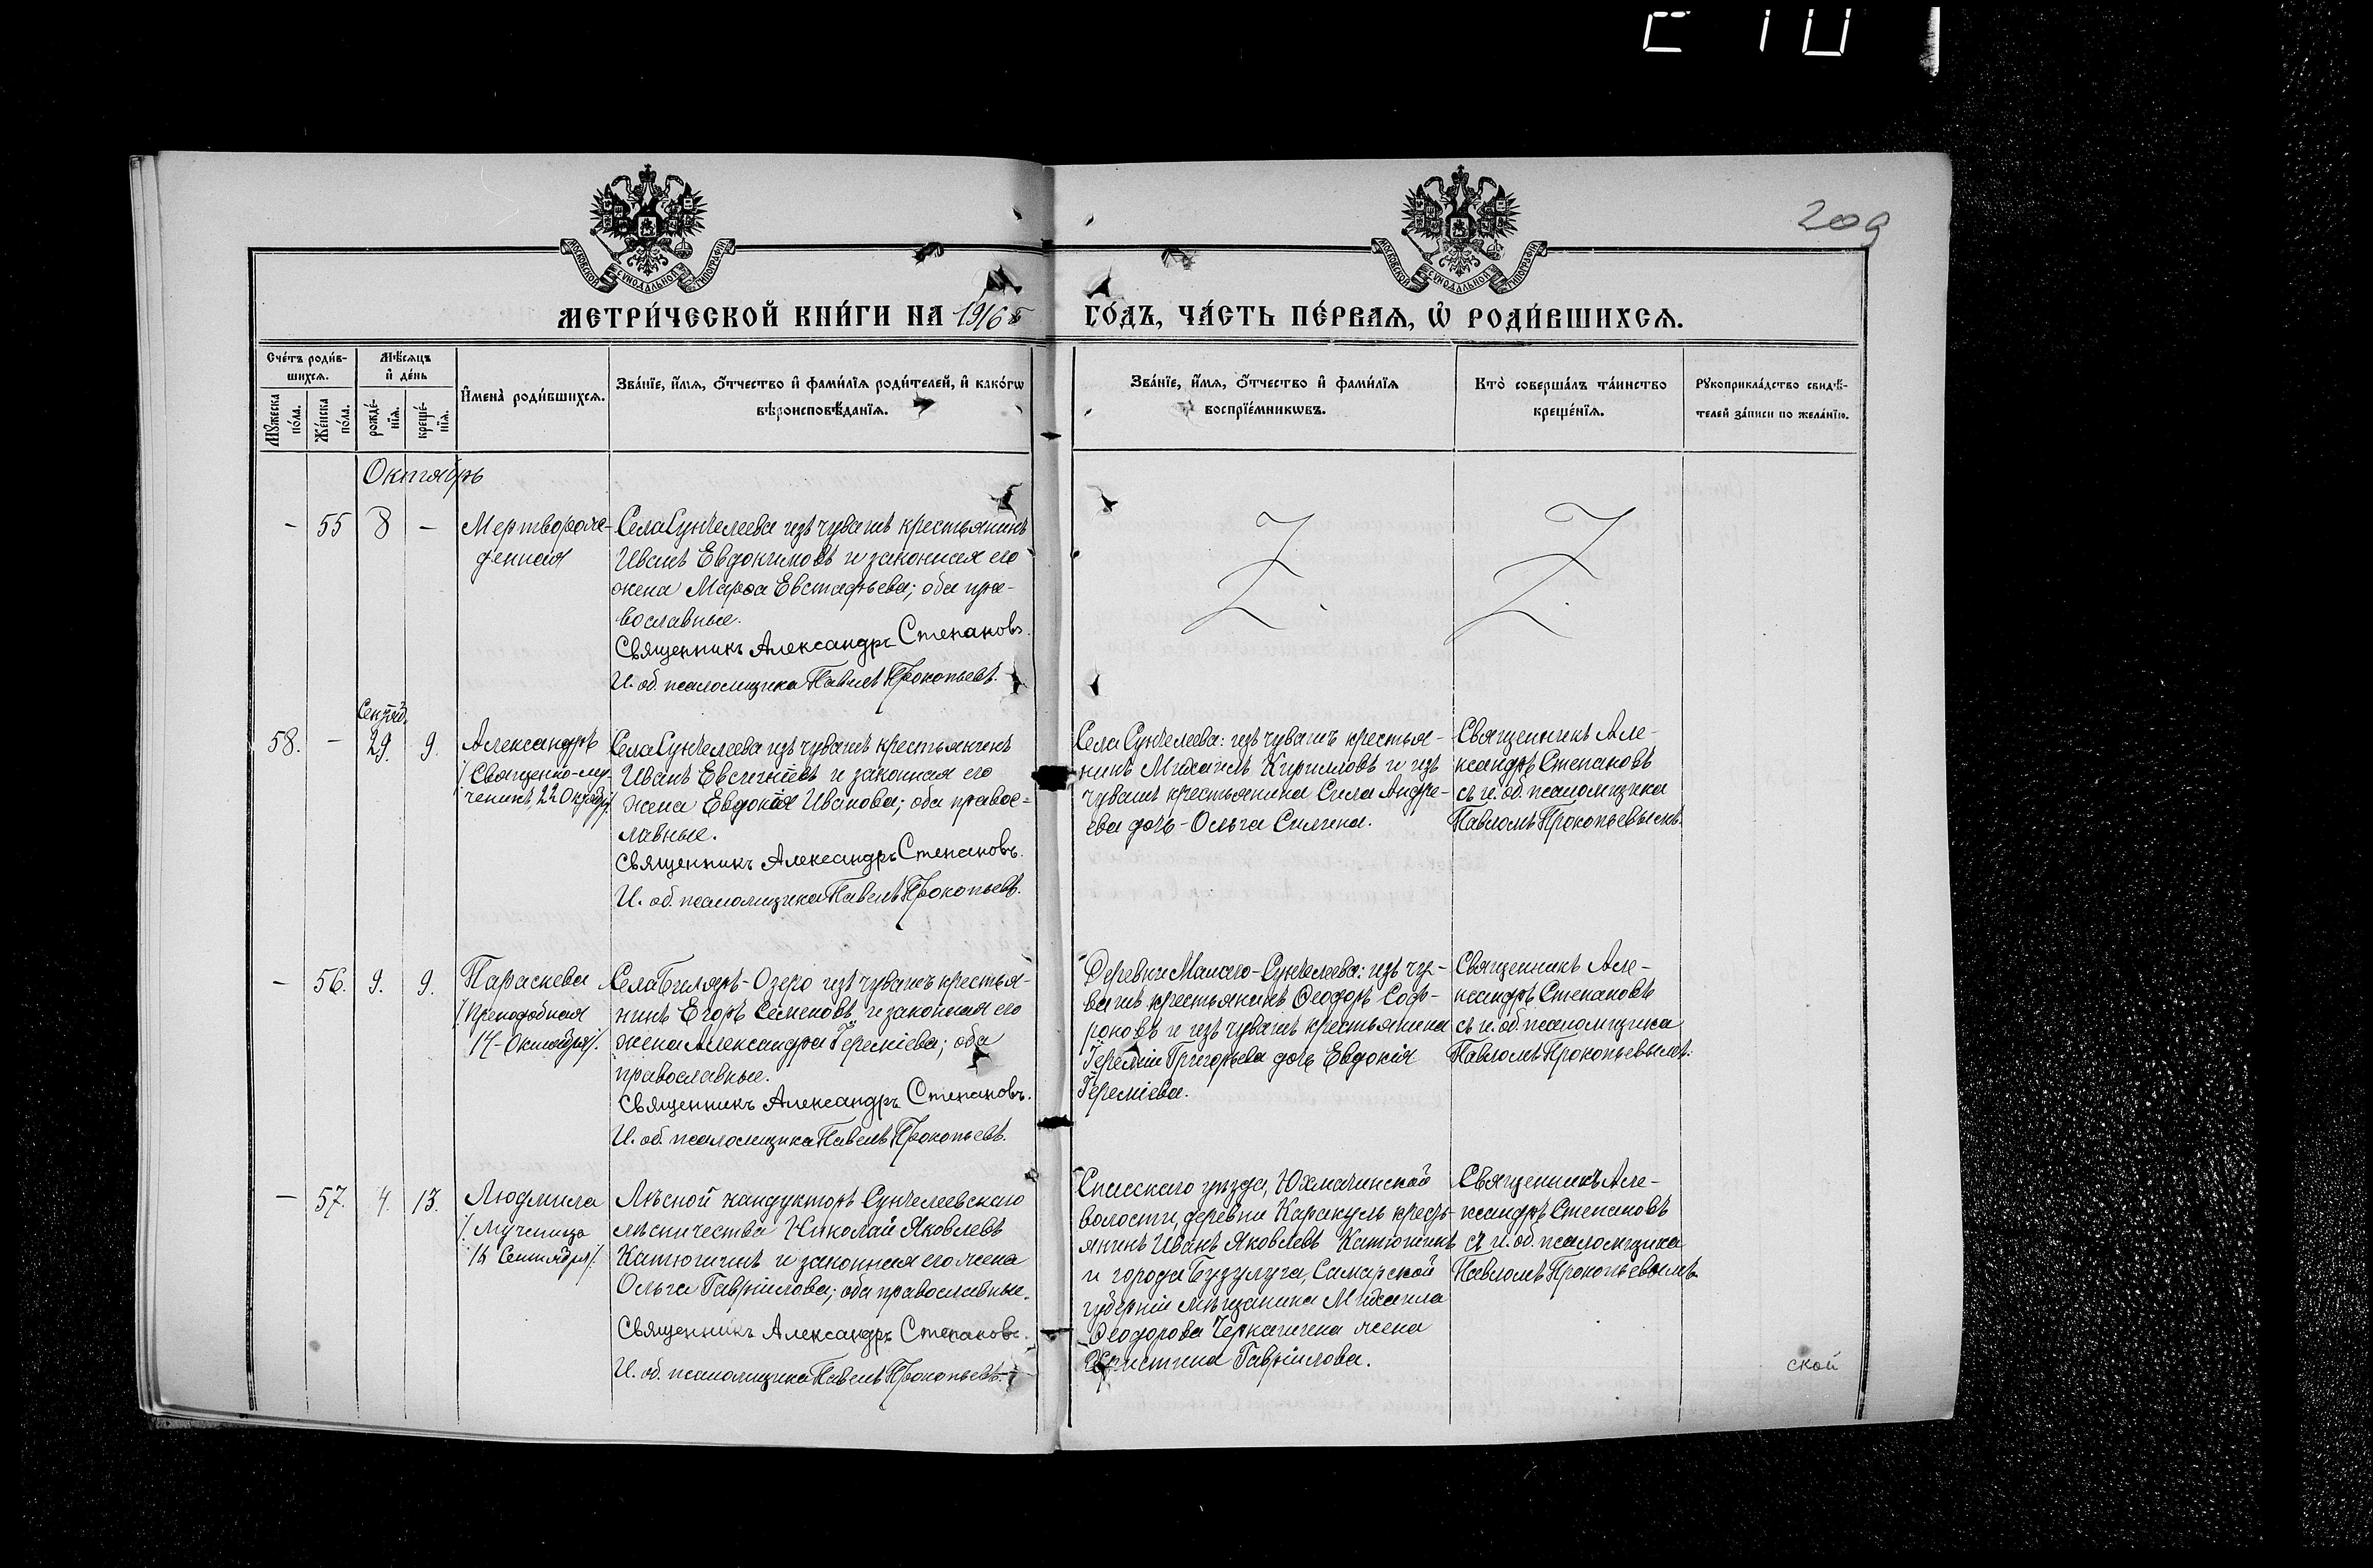 209
МОСКОВСКОЙ СѴНОДАЛЬНОЙ ТИПОГРАФІИ
МОСКОВСКОЙ СѴНОДАЛЬНОЙ ТИПОГРАФІИ
МЕТРИ́ЧЕСКОЙ КНИ́ГИ НА 1916 ГО́ДЪ, ЧА́СТЬ ПЕ́РВАЯ, Ѡ҆ РОДИ́ВШИХСЯ.
Сче́тъ роди́в-
шихся.
Мѣ́сяцъ
и҆ де́нь
Му́жеска
по́ла.
Же́нска
по́ла.
рожде́-
нїя.
креще́-
нїя.
И҆мена̀ роди́вшихся.
Зва́нїе, и҆́мя, ѻ҆́тчество и҆ фами́лїя роди́телей, и҆ како́гѡ
вѣроисповѣ́данїя.
Зва́нїе, и҆́мя, ѻ҆́тчество и҆ фами́лїя
воспрїе́мникѡвъ.
Кто̀ соверша́лъ та́инство
креще́нїя.
Рꙋкоприкла́дство свидѣ́-
телей за́писи по жела́нїю.
Октябрь
- 55 8 -
Мертворож-
денная
Села Сунчелеева изъ чувашъ крестьянинъ
Иванъ Евдокимовъ и законная его
жена Марѳа Евстафьева; оба пра-
вославные.
Священникъ Александръ Степановъ.
И. об. псаломщика Павелъ Прокопьевъ.
Сентяб.
58. - 29. 9.
Александръ
/Священно-му-
ченикъ, 22 Октября/.
Села Сунчелеева изъ чувашъ крестьянинъ
Иванъ Евсигніевъ и законная его
жена Евдокія Иванова; оба правос=
лавные.
Священникъ Александръ Степановъ.
И. об. псаломщика Павелъ Прокопьевъ.
Села Сунчелеева: изъ чувашъ крестья-
нинъ Михаилъ Кирилловъ и изъ
чувашъ крестьянина Сила Андре-
ева дочь - Ольга Силина.
Священникъ Але-
ксандръ Степановъ
съ и. об. псаломщика
Павломъ Прокопьевымъ.
- 56. 9. 9.
Параскева
/Преподобная
14 - Октября/.
Села Биляръ-Озеро изъ чувашъ крестья-
нинъ Егоръ Семеновъ и законная его
жена Александра Іереміева; оба
православные.
Священникъ Александръ Степановъ.
И. об. псаломщика Павелъ Прокопьевъ.
Деревни Малаго-Сунчелеева: изъ чу-
вашъ крестьянинъ Ѳеодоръ Соф-
роновъ и изъ чувашъ крестьянина
Іереміи Григорьева дочь Евдокія
Іереміева.
Священникъ Але-
ксандръ Степановъ
съ и. об. псаломщика
Павломъ Прокопьевымъ.
- 57. 4. 13.
Людмила
/мученица
16 Сентября/.
Лѣсной кандукторъ Сунчелеевскаго
лѣсничества Николай Яковлевъ
Катюшинъ и законная его жена
Ольга Гавріилова; оба православные.
Священникъ Александръ Степановъ.
И. об. псаломщика Павелъ Прокопьевъ.
Спасскаго уѣзда, Юхмачинской
волости, деревни Каракуль кресть-
янинъ Иванъ Яковлевъ Катюшинъ
и города Бузулуга, Самарской
губерніи мѣщанина Михаила
Ѳеодорова жена
Христина Гавріилова.
Священникъ Але-
ксандръ Степановъ
съ и. об. псаломщика
Павломъ Прокопьевымъ.
ской